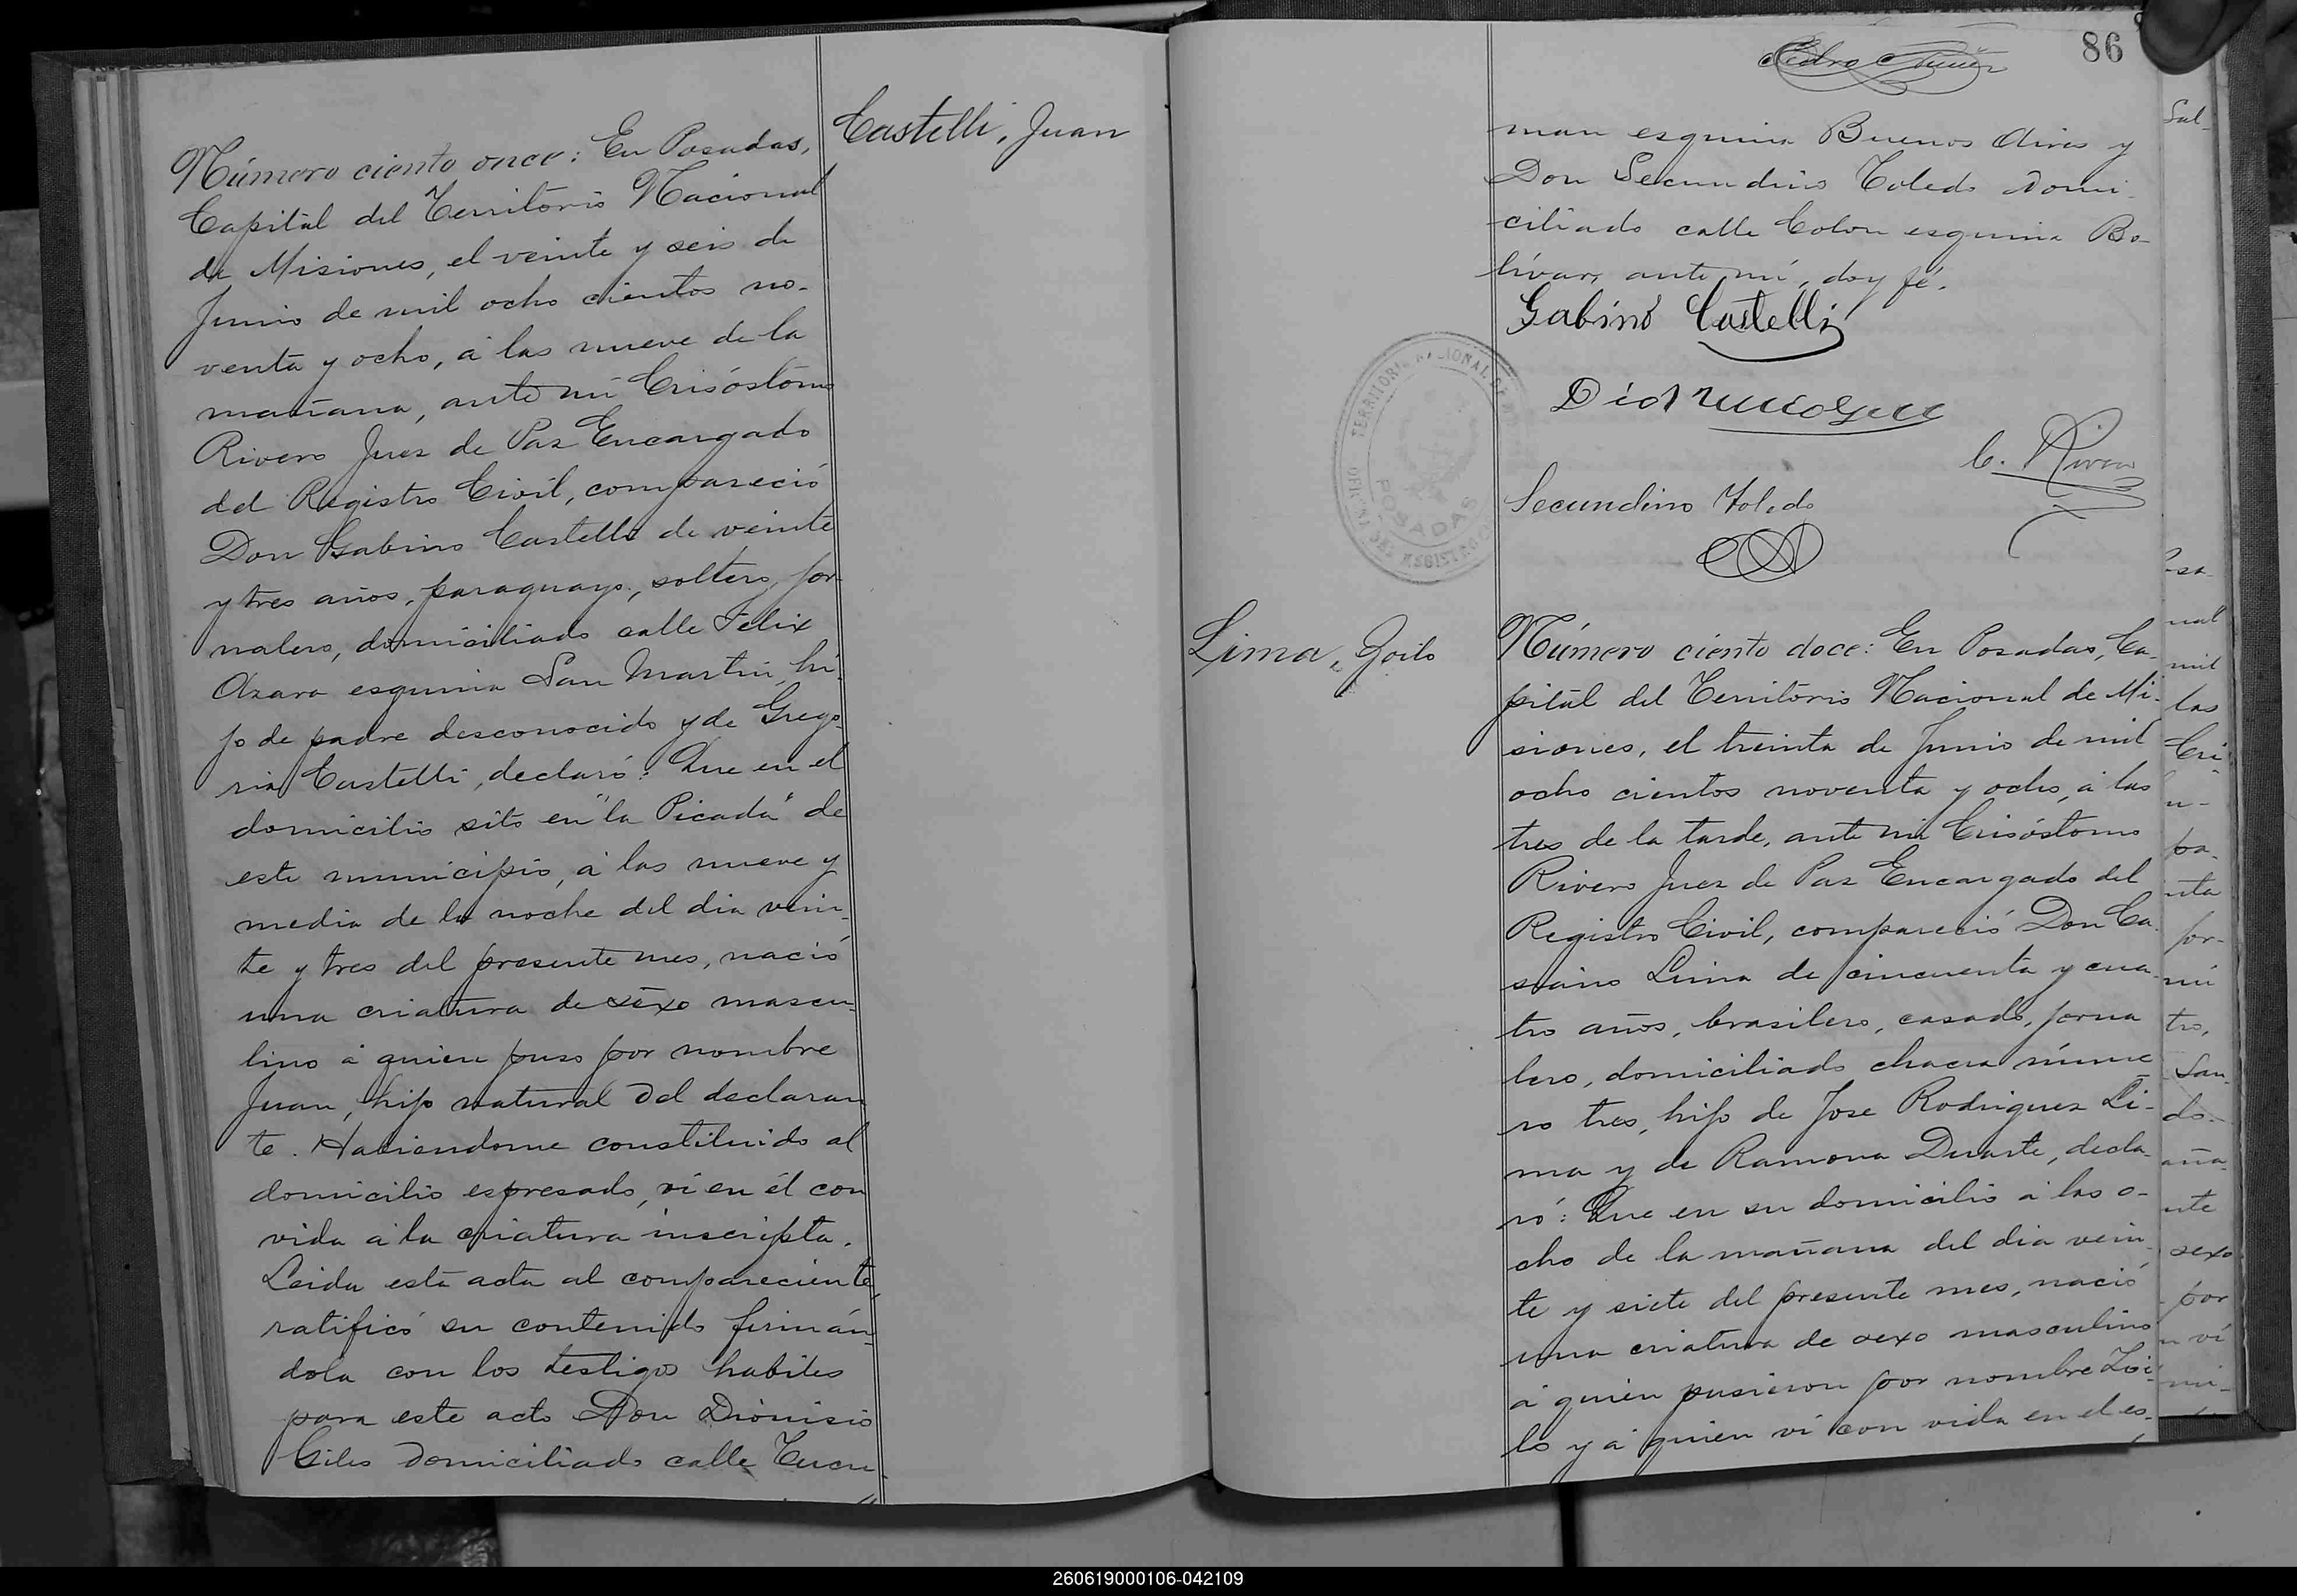 Castelli, Juan
Número ciento once: En Posadas,
Capital del Territorio Nacional
de Misiones, el veinte y seis de
Junio de mil ocho cientos no-
venta y ocho, á las nueve de la
mañana, ante mi Crisóstomo
Rivero Juez de Paz Encargado
del Registro Civil, compareció
Don Gabino Castelli de veinte
y tres años, paraguayo, soltero, jor-
nalero, domiciliado calle Felix
Azara esquina San Martin, hi-
jo de padre desconocido y de Grego-
ria Castelli, declaró: Que en el
domicilio sito en "la Picada" de
este municipio, á las nueve y
media de la noche del dia vein-
te y tres del presente mes, nació
una criatura de sexo mascu-
lino á quien puso por nombre
Juan, hijo natural del declaran
te. Habiendome constituido al
domicilio espresado, vi en él con
vida á la criatura inscripta.
Leida esta acta al compareciente,
ratificó su contenido firmán-
dola con los testigos habiles
para este acto Don Dionisio
Giles domiciliado calle Tucu-
86
man esquina Buenos Aires y
Don Secundino Toledo domi-
ciliado calle Colon esquina Bo-
livar, ante mí, doy fé.
Gabino Castelli
C. Rivero
Secundino Toledo
TERRITORIO NACIONAL DE
OFICINA DEL REGISTRO
POSADAS
Lima, Zoilo
Número ciento doce: En Posadas, Ca-
pital del Territorio Nacional de Mi-
siones, el treinta de Junio de mil
ocho cientos noventa y ocho, á las
tres de la tarde, ante mi Crisóstomo
Rivero Juez de Paz Encargado del
Registro Civil, compareció Don Ca-
siano Lima de cincuenta y cua-
tro años, brasilero, casado, jorna
lero, domiciliado chacra núme
ro tres, hijo de Jose Rodriguez Li-
ma y de Ramona Duarte, decla-
ró: Que en su domicilio á las o-
cho de la mañana del dia vein-
te y siete del presente mes, nació
una criatura de sexo masculino
á quien pusieron por nombre Zoi-
lo y á quien vi con vida en el es-
Sal-
nal
mil
las
Cri
u-
pa-
nta
jor-
mi
tro,
San-
do-
aña-
nte
sexo
por
n vi
260619000106-042109